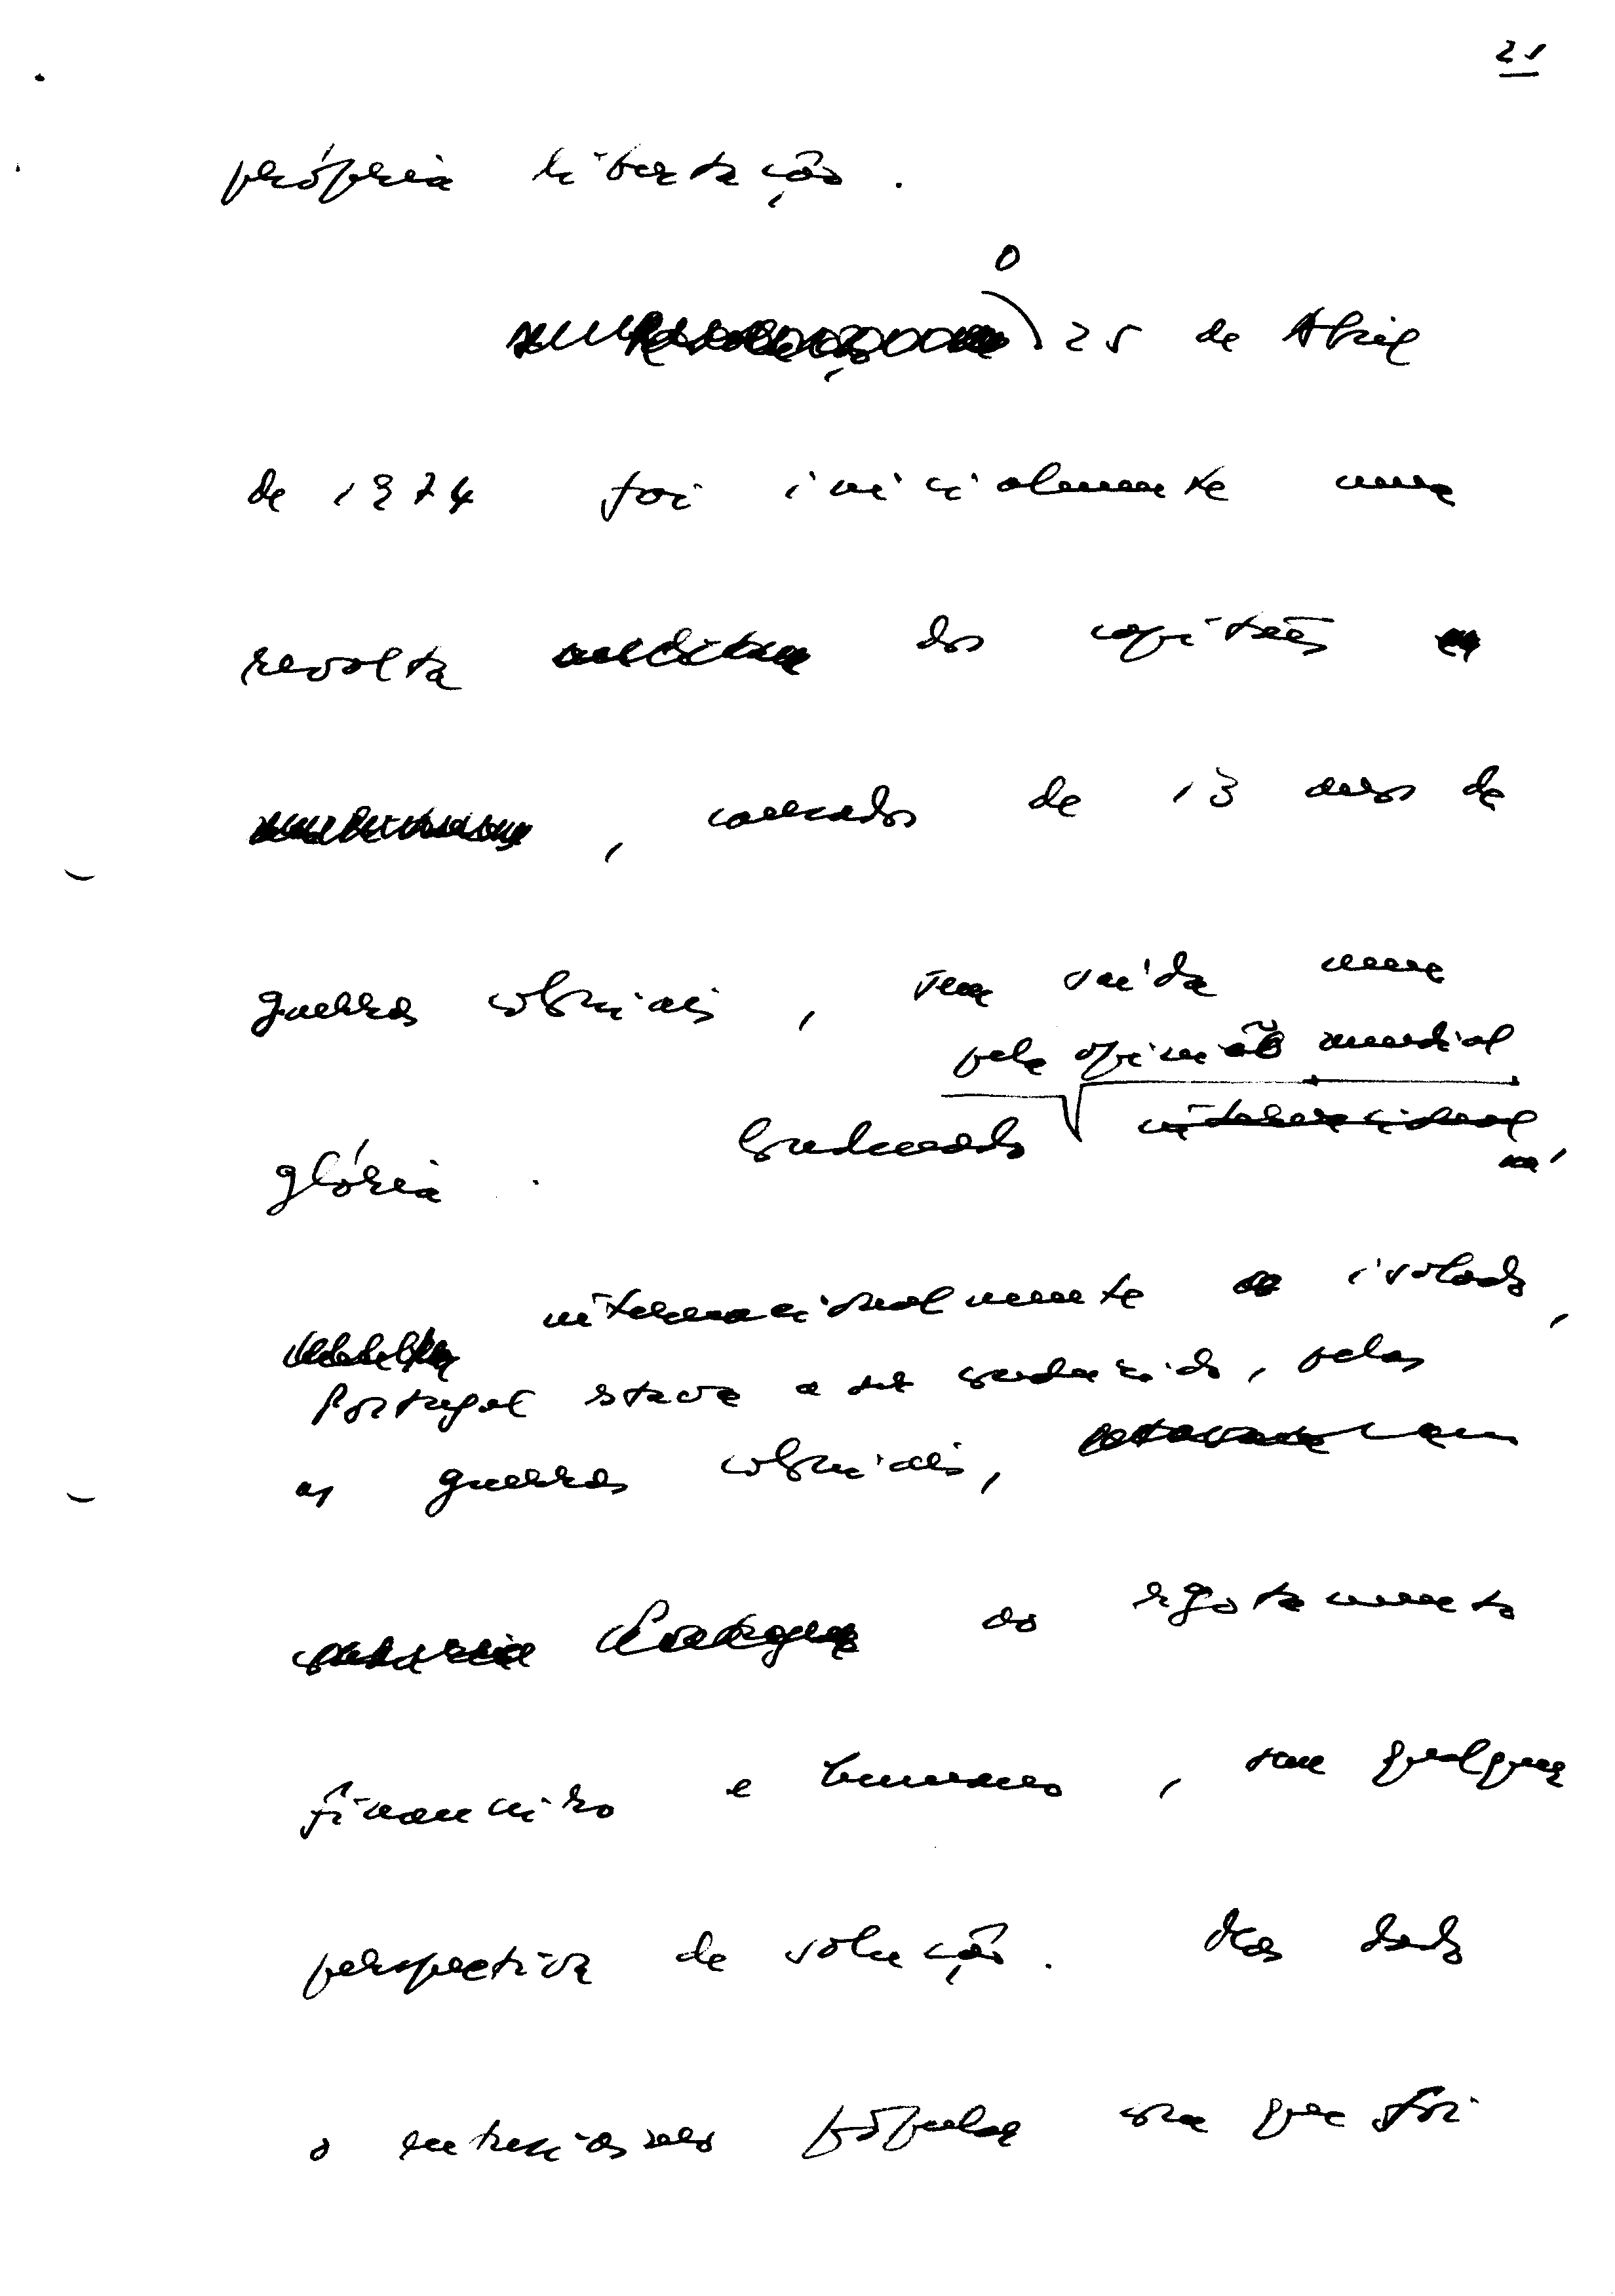 21
própria libertação.
O 25 de Abril
de 1974 foi inicialmente uma
revolta dos capitães
, cansados de 13 anos de
guerras coloniais, sem saída nem
pela opinião mundial
glória. Condenado internacional
internacionalmente isolado,
Portugal estava a ser conduzido, pelas
as guerras coloniais,
ao esgotamento
financeiro e humano, sem qualquer
perspectiva de solução. Mas dado
o entusiasmo popular com que foi